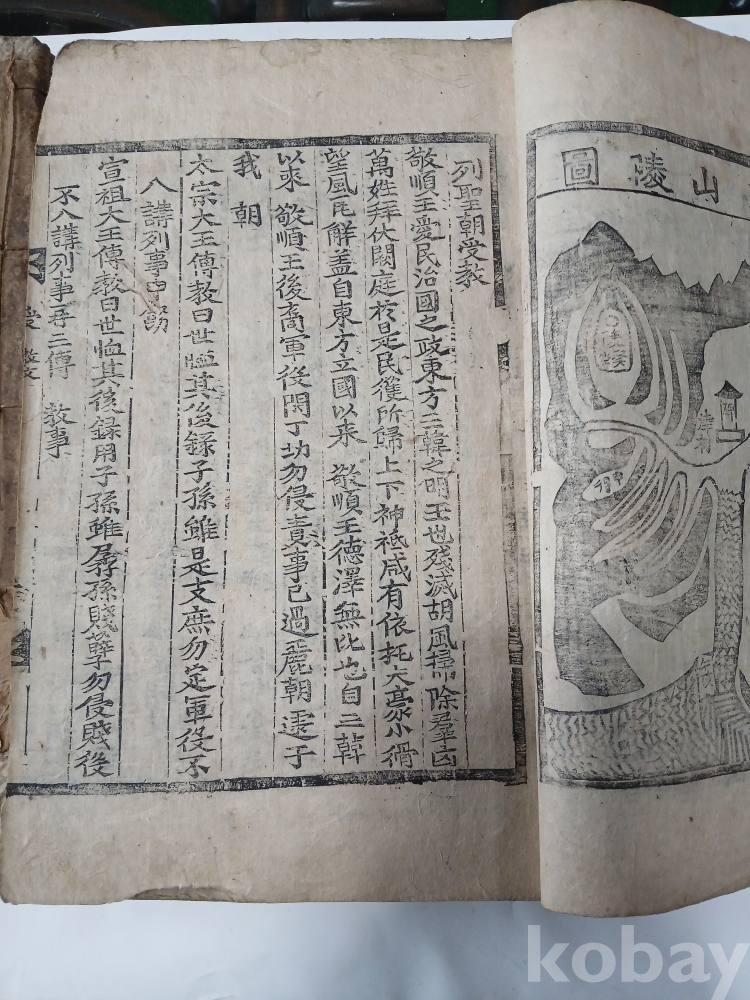 山陵圖
列聖朝受敎
敬順王愛民治國之政東方三韓之明王也殘滅胡風掃除羣凶
萬姓拜伏闕庭於是民獲所歸上下神祗咸有依托大豪小猾
望風瓦解盖自東方立國以來 敬順王德澤無比也自三韓
以來 敬順王後裔軍役閑丁切勿侵責事已過麗朝逮于
我朝
太宗大王傳敎曰世恤其後錄子孫雖是支庶勿定軍役不
入講列事申飭
宣祖大王傳敎曰世恤其後錄用子孫雖孱孫賤孽勿侵賤後
不入講列事再三傳 敎事
受敎
kobay